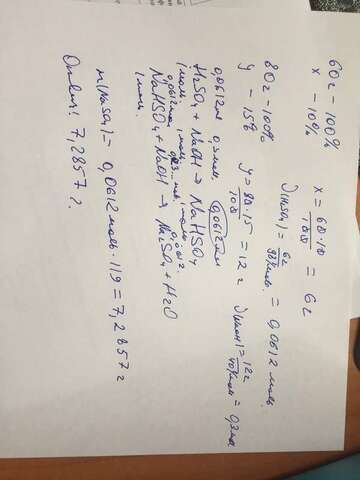 60г - 100%
x - 10%
x = 60·10/100 = 6г
ν(H₂SO₄) = 6г/98г/моль = 0,0612 моль.
80г - 100%
y - 15%
y = 80·15/100 = 12г
ν(NaOH) = 12г/40г/моль = 0,3моль
0,0612м 0,3моль 0,0612м
H₂SO₄ + NaOH → NaHSO₄
1моль 1моль 1моль
NaHSO₄ + NaOH → Na₂SO₄ + H₂O
1моль
= 0,0612 моль · 119 = 7,2857г
Ответ: 7,2857г.